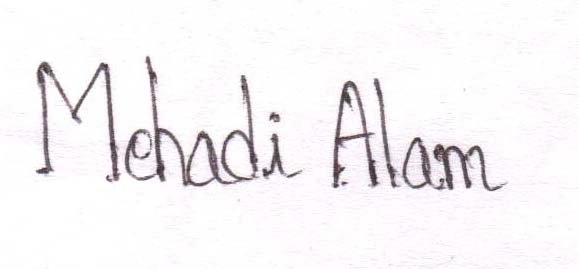 Mehadi Alam